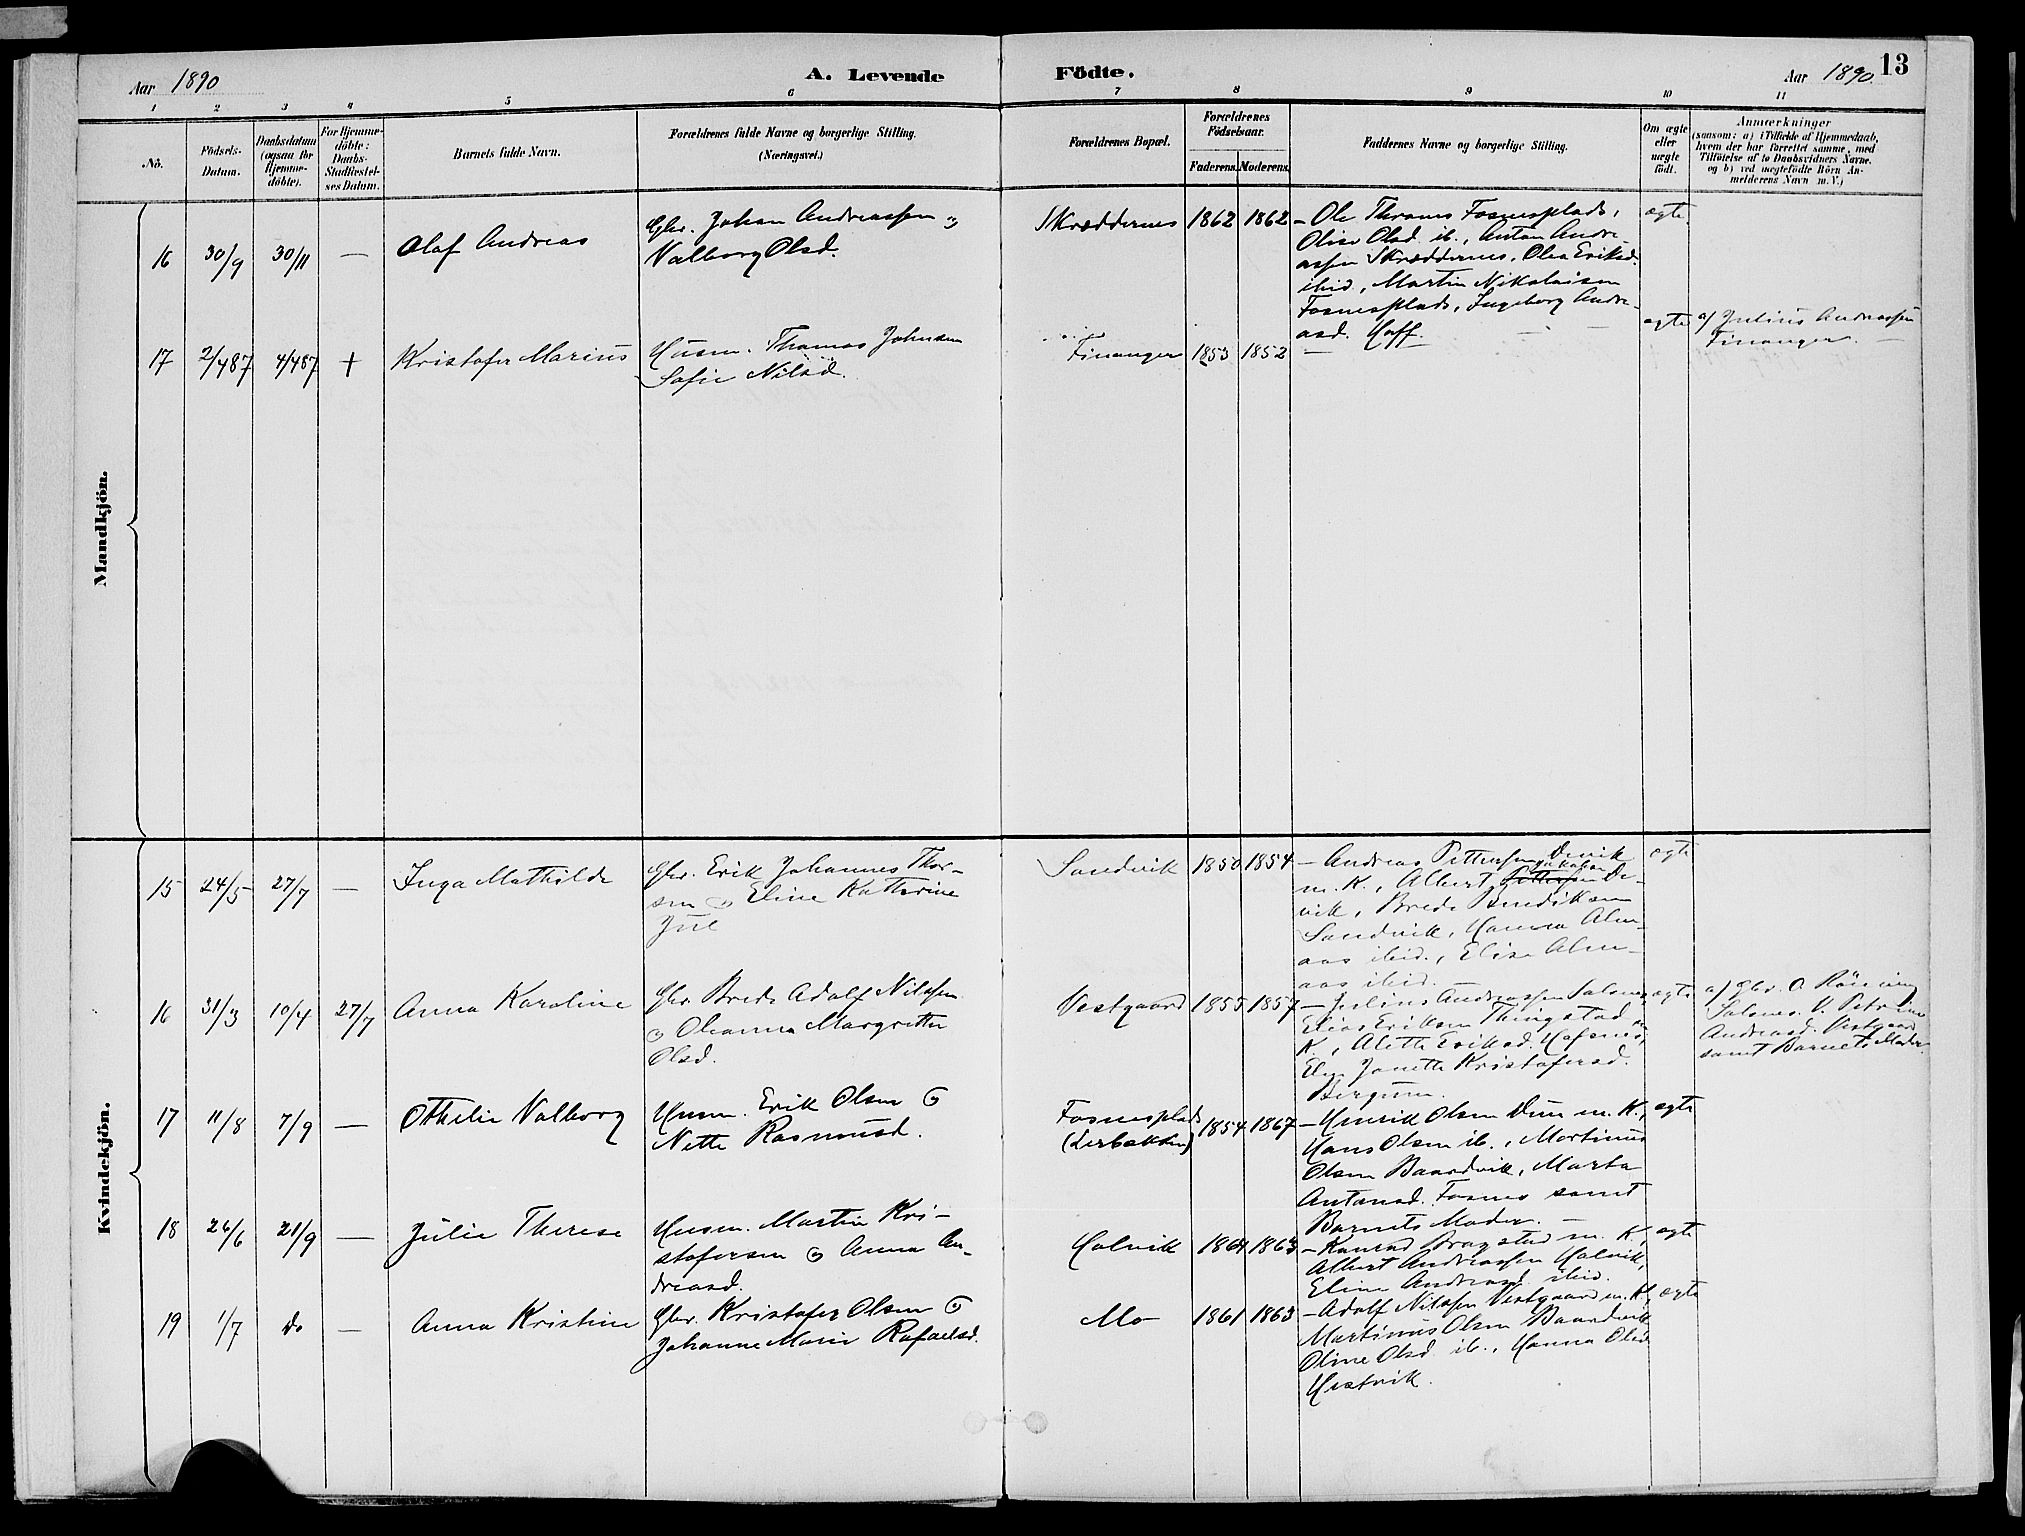 Aar 1890
A. Levende
Födte.
Aar 1890.
13
1 2 3 4 5 6 7 8 9 10 11
No.
Födsels-
Datum.
Daabsdatum
(ogsaa for
Hjemme-
döbte).
For Hjemme-
döbte:
Daabs-
Stadfæstel-
ses Datum.
Barnets fulde Navn.
Forældrenes fulde Navne og borgerlige Stilling.
(Næringsvei.)
Forældrenes Bopæl.
Forældrenes
Födselsaar.
Faderens. Moderens.
Faddernes Navne og borgerlige Stilling.
Om ægte
eller
uægte
födt.
Anmærkninger
(saasom: a) i Tilfælde af Hjemmedaab,
hvem der har forrettet samme, med
Tilföielse af to Daabsvidners Navne.
og b) ved uægtefödte Börn An-
melderens Navn m. V.)
Mandkjön.
16 30/9 30/11 — Olaf Andreas
Gbr. Johan Andreassen og
Valborg Olsd.
Skræddernes 1862 1862
– Ole Thranes Fosnesplads,
Olise Olsd. ib., Anton Andre
assen Skræddernes, Olea Eriksd.
ibid., Martin Nikolaisen
Fosnesplads, Ingeborg Andre-
asd. Hoff.
ægte
17 2/487 4/487 + Kristofer Marius
Husm. Thomas Johnsen
Sofie Nilsd.
Finanger 1853 1852 —
ægte
af Julius Andreassen
Finanger. —
Kvindekjön.
15 24/5 27/7 — Inga Mathilde
Gbr. Erik Johannes Thor-
sen og Eline Kathrine
Juel
Sandvik 1850 1854
– Andreas Pettersen Devik
m. K., Albert Pettersen De-
vik, Brede Bendiksen
Sandvik, Hanna Alm-
aas ibid., Elise Alm-
aas ibid.
ægte
16 31/3 10/4 27/7 Anna Karoline
Gbr. Brede Adolf Nilssen
og Oleanna Margrethe
Olsd.
Vestgaard 1855 1857
– Julius Andreassen Salsnes
Elias Eriksen Thingstad m.
K., Alette Eriksd. Hafsnes,
Janette Kristofersd.
Bergum.
ægte
af Gbr. O.
Salsnes. V. Petrine
Andreasd. Vestgaard
samt Barnets Moder.
17 11/8 7/9 — Othelie Valborg
Husm. Erik Olsen og
Nette Rasmusd.
Fosnesplads
(Lerbakken) 1854 1867
– Henrik Olsen Dun m. K.,
Hans Olsen ib., Martinus
Olsen Baardvik, Marta
Antonsd. Fosnes samt
Barnets Moder. —
ægte
18 26/6 21/9 — Julie Therese
Husm. Martin Kri-
stofersen og Anna An-
dreasd.
Halvik 1864 1863
– Konrad Dragstad m. K.,
Albert Andreassen Halvik,
Eline Andreasd. ibid.
ægte
19 1/7 Do — Anna Kristine
Gbr. Kristofer Olsen og
Johanne Marie Rafaelsd.
Mo 1861 1863
– Adolf Nilssen Vestgaard m. K.,
Martinus Olsen Baardvik
Oline Olsd. ib., Hanna Olsd.
Hestvik.
ægte